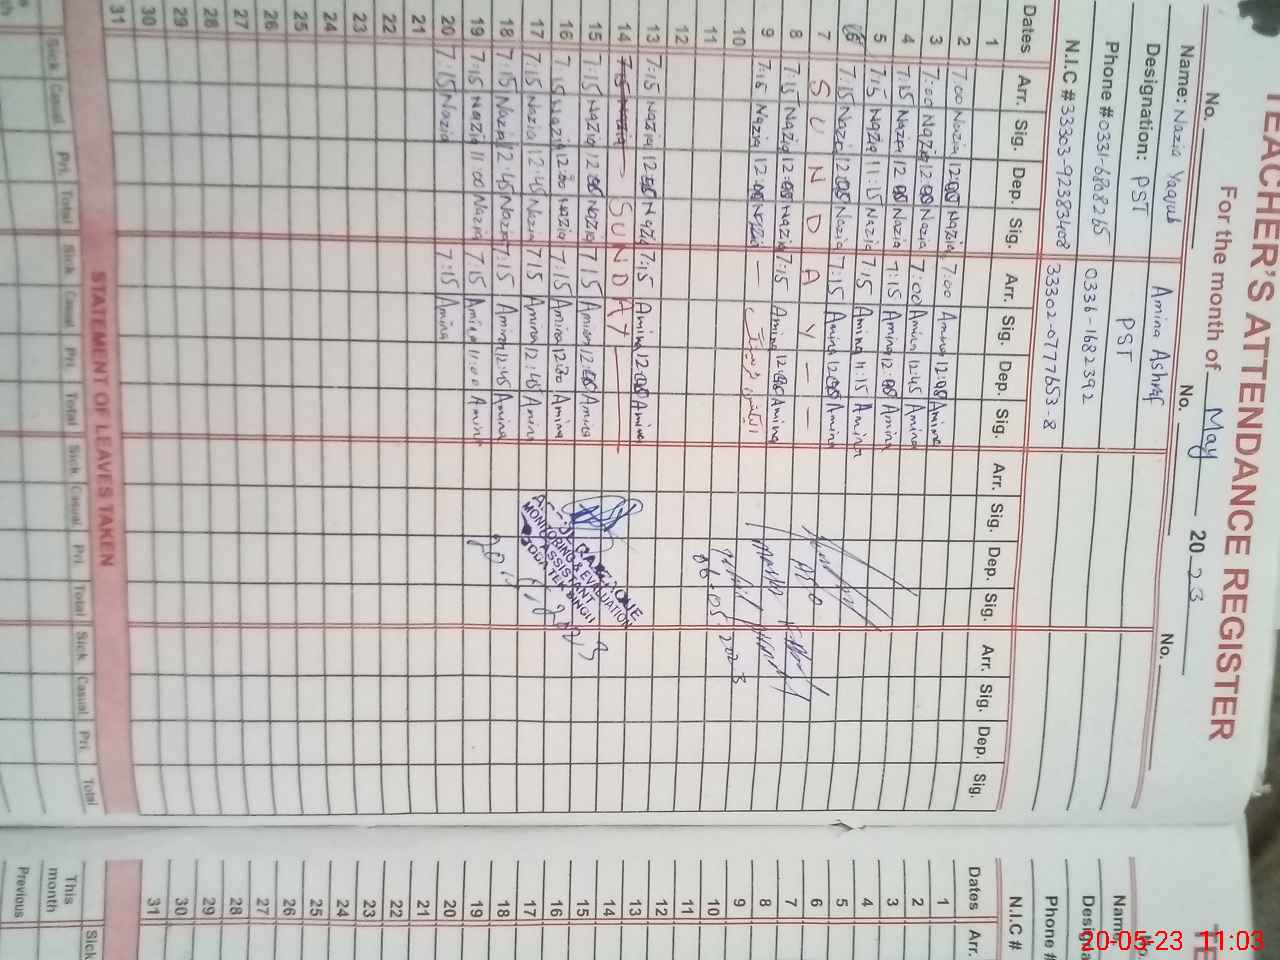 TEACHER'S ATTENDANCE REGISTER
For the month of May 2023
No. No. No.
Name: Nazia Yaqub Amina Ashraf
Designation: PST PST
Phone # 0331-6868265 0336-1682392
N.I.C # 33303-92383408 33302-0777653-8
Dates Arr. Sig. Dep. Sig. Arr. Sig. Dep. Sig. Arr. Sig. Dep. Sig. Arr. Sig. Dep. Sig.
1
2 7:00 Nazia 12:00 Nazia 7:00 Amina 12:00 Amina
3 7:00 Nazia 12:00 Nazia 7:00 Amina 12:45 Amina
4 7:15 Nazia 12:00 Nazia 7:15 Amina 12:00 Amina
5 7:15 Nazia 11:15 Nazia 7:15 Amina 11:15 Amina
6 7:15 Nazia 12:00 Nazia 7:15 Amina 12:00 Amina
7 S U N D A Y - -
8 7:15 Nazia 12:00 Nazia 7:15 Amina 12:00 Amina
9 7:15 Nazia 12:00 Nazia —
10
11
12
13 7:15 Nazia 12:00 Nazia 7:15 Amina 12:00 Amina
14 7:15 Nazia — SUNDAY —
15 7:15 Nazia 12:00 Nazia 7:15 Amina 12:00 Amina
16 7:15 Nazia 12:30 Nazia 7:15 Amina 12:30 Amina
17 7:15 Nazia 12:45 Nazia 7:15 Amina 12:45 Amina
18 7:15 Nazia 12:45 Nazia 7:15 Amina 12:45 Amina
19 7:15 Nazia 11:00 Nazia 7:15 Amina 11:00 Amina
20 7:15 Nazia 7:15 Amina
21
22
23
24
25
26
27
28
29
30
31
06-05-2023
MONITORING & EVALUATION
ASSISTANT
TOBA TEK SINGH
STATEMENT OF LEAVES TAKEN
Sick Casual Pri. Total Sick Casual Pri. Total Sick Casual Pri. Total Sick Casual Pri. Total
TE
Name
Phone #
N.I.C #
Dates Arr.
1
2
3
4
5
6
7
8
9
10
11
12
13
14
15
16
17
18
19
20
21
22
23
24
25
26
27
28
29
30
31
Sick
This month
Previous
20-05-23 11:03